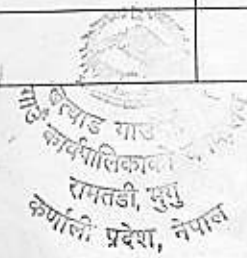 खत्याड गाउँ
गाउँ कार्यपालिकाको
रामतडी, मुगु
कर्णाली प्रदेश, नेपाल